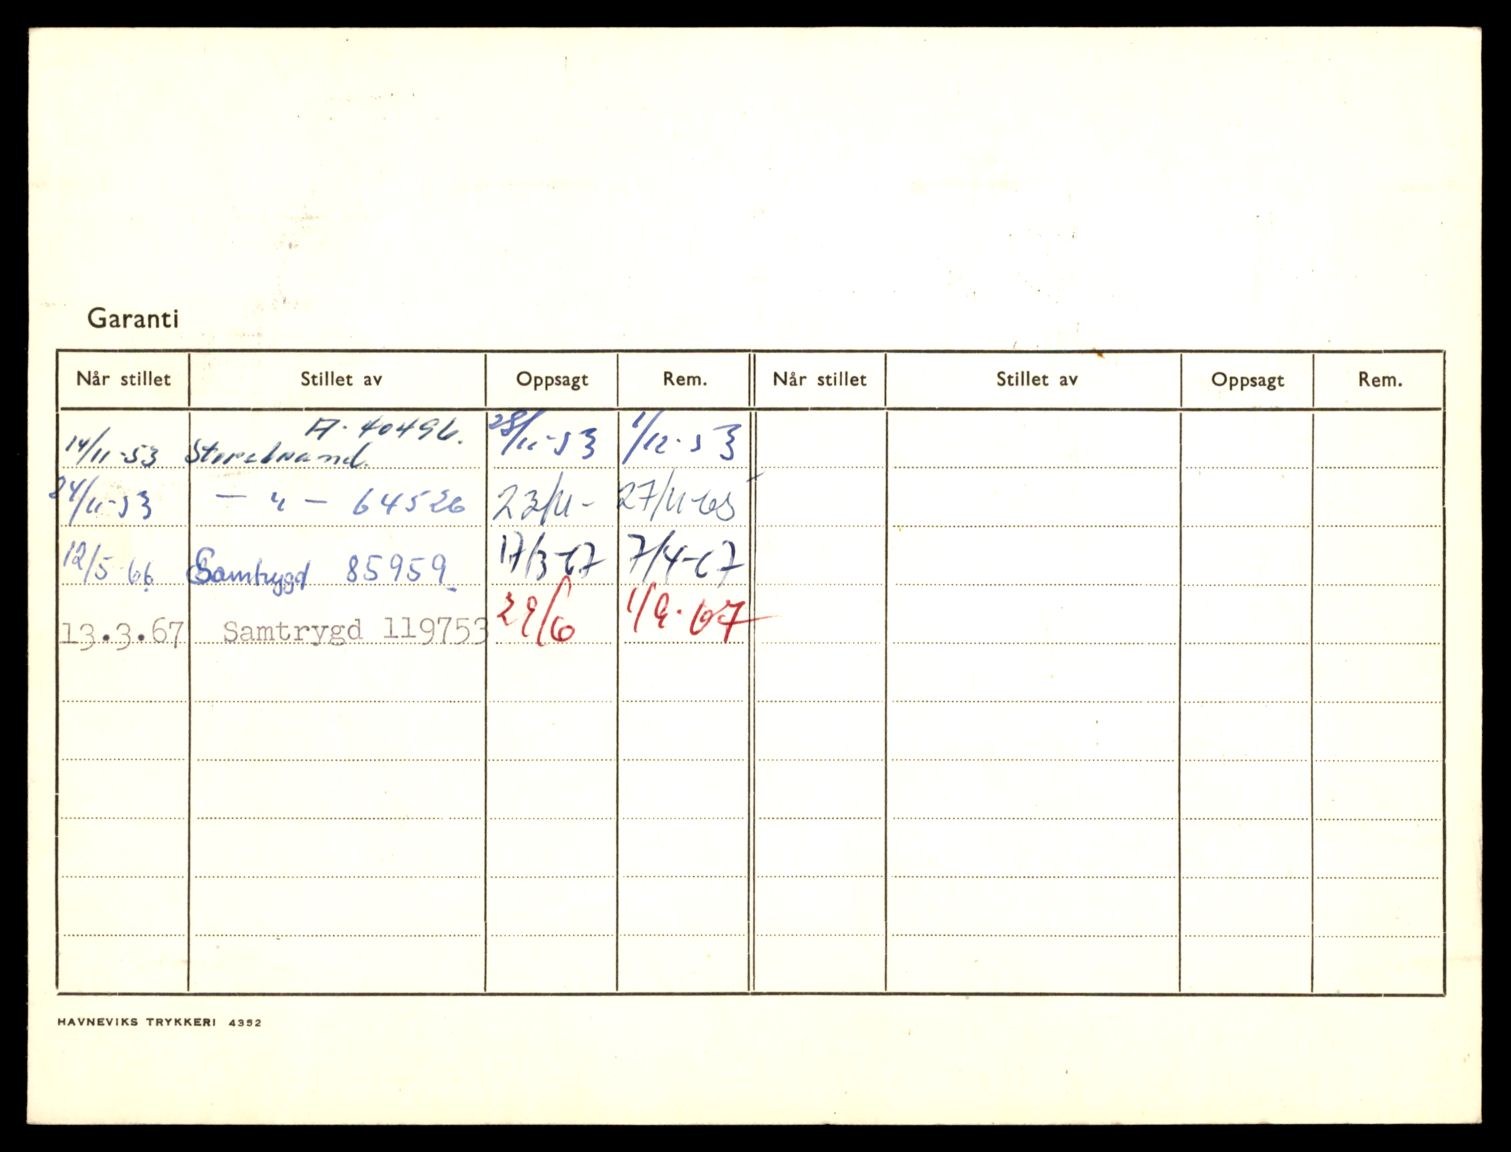 Garanti
Når stillet Stillet av Oppsagt Rem. Når stillet Stillet av Oppsagt Rem.
A. 40496.
14/11-53 Storebrand. 28/11-53 1/12-53
24/11-53 — " — 64526 23/11- 27/11-65
12/5-66 Samtrygd 85959. 17/3-67 7/4-67
13.3.67 Samtrygd 119753 29/6 1/9-67
HAVNEVIKS TRYKKERI 4352